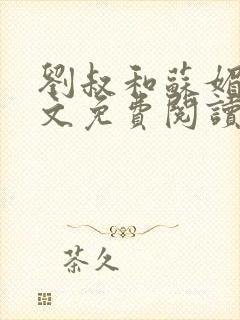 劉叔和蘇媚
文免費閱讀
茶久